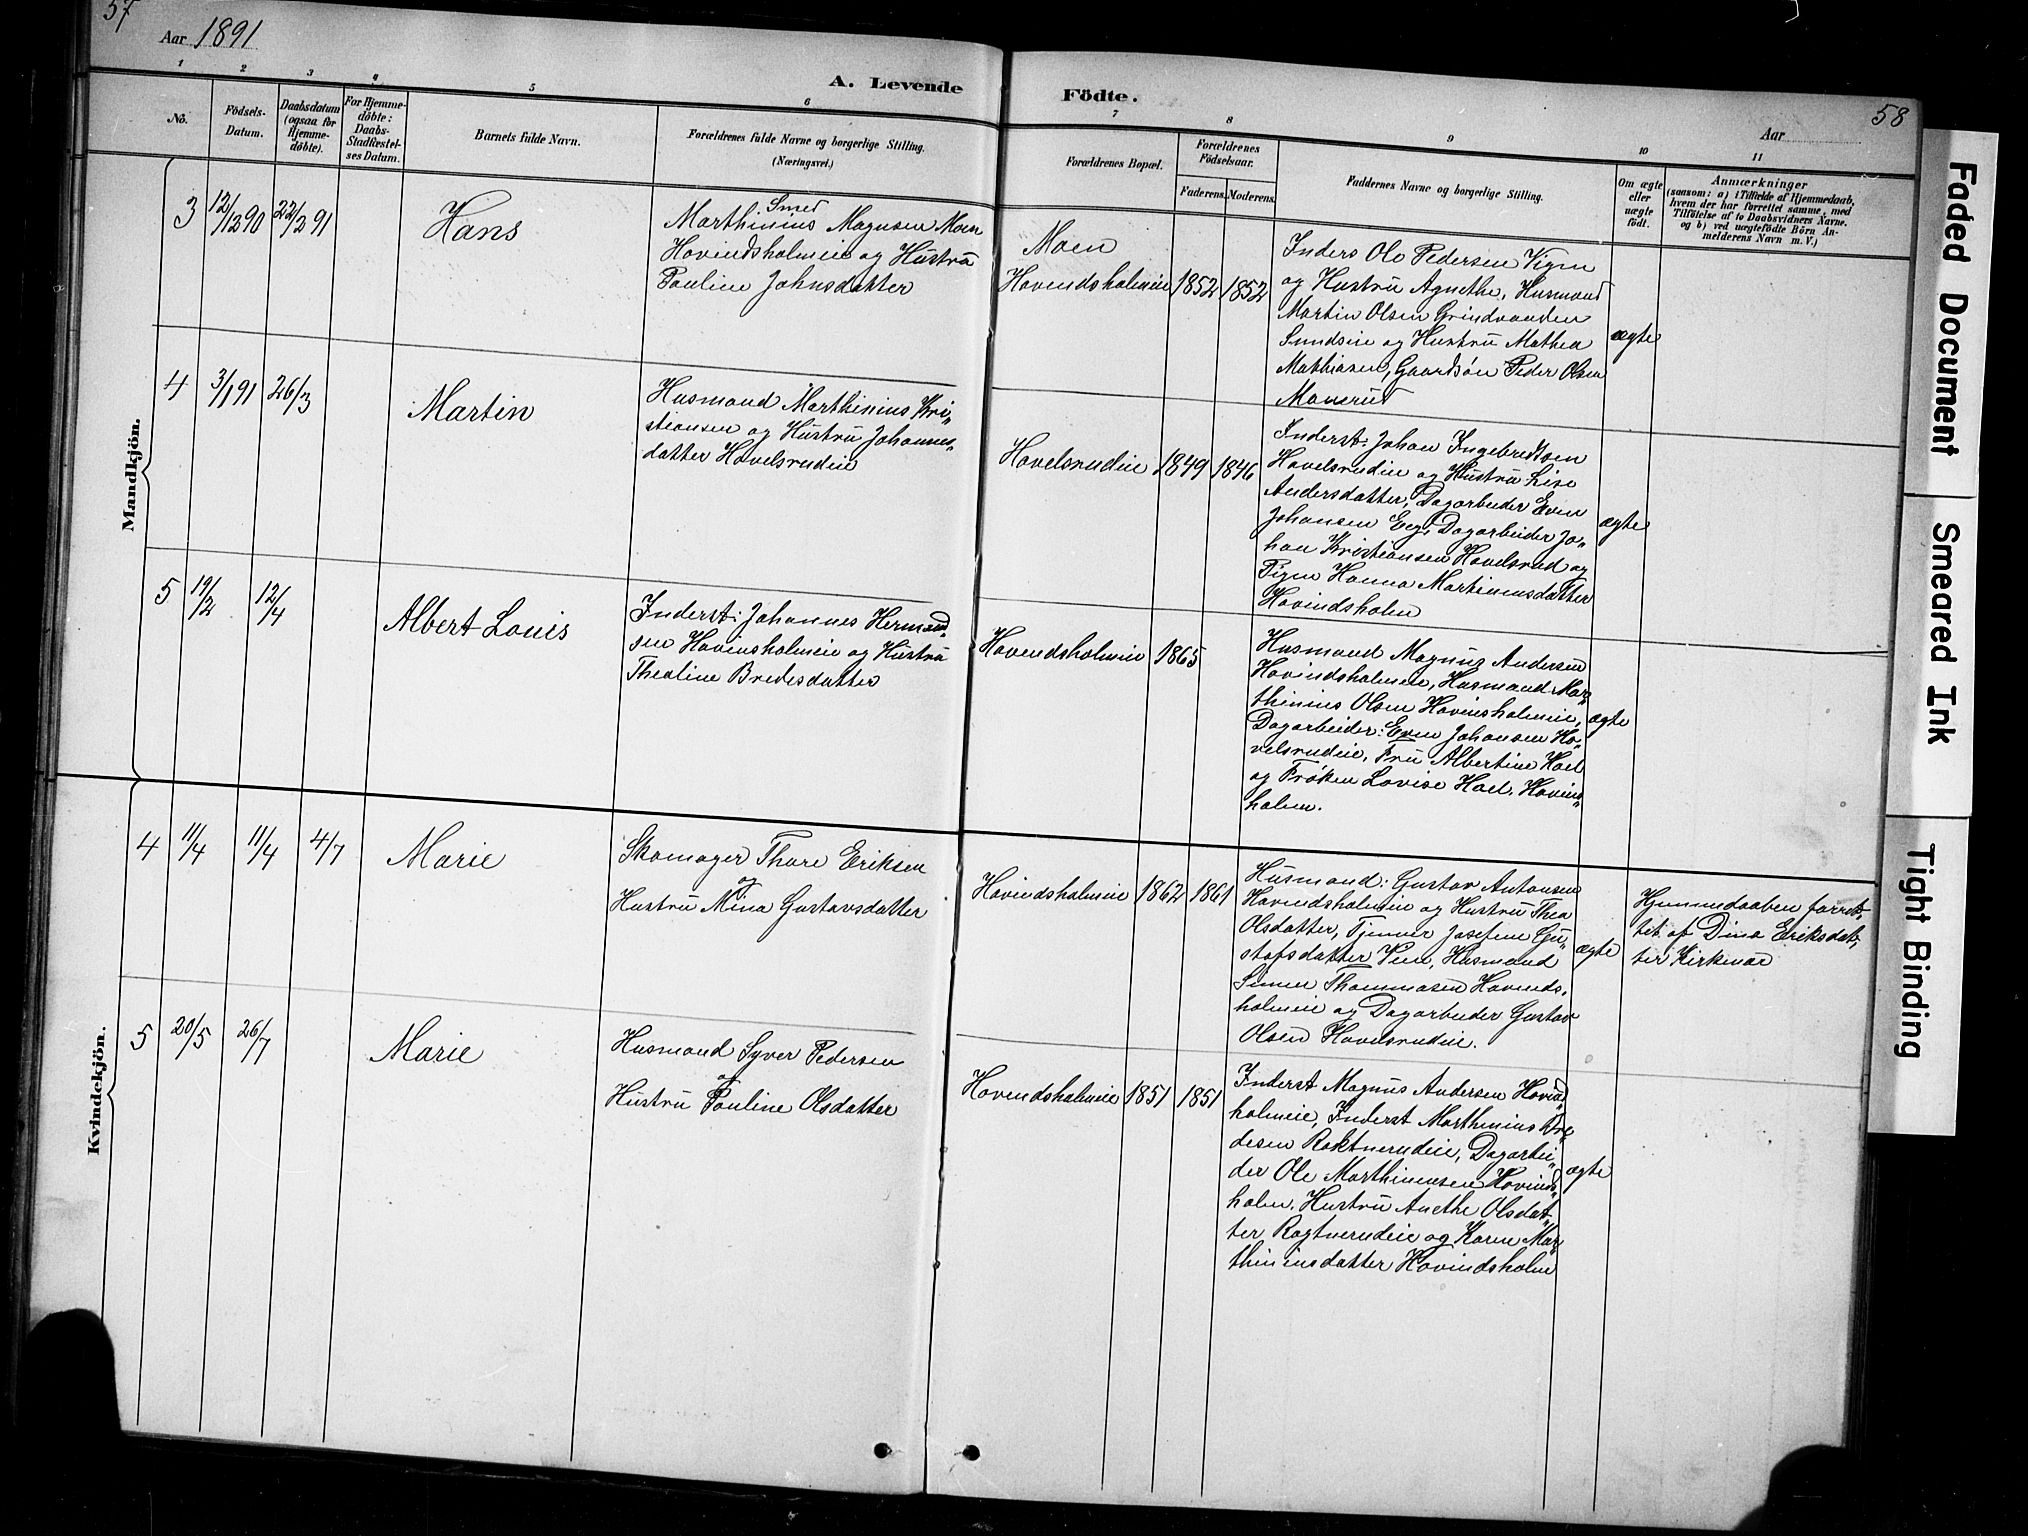 57
Aar 1891
A. Levende
Födte.
58
Aar
1 2 3 4 5 6 7 8 9 10 11
No.
Födsels-
Datum.
Daabsdatum
(ogsaa for
Hjemme-
döbte).
For Hjemme-
döbte:
Daabs-
Stadfæstel-
ses Datum.
Barnets fulde Navn.
Forældrenes fulde Navne og borgerlige Stilling.
(Næringsvei.)
Forældrenes Bopæl.
Forældrenes
Födselsaar.
Faderens. Moderens.
Faddernes Navne og borgerlige Stilling.
Om ægte
eller
uægte
født.
Anmærkninger
(saasom: a) i Tilfælde af Hjemmedaab,
hvem der har forrettet samme, med
Tilföielse af to Daabsvidners Navne.
og b) ved uægtefödte Börn An-
melderens Navn m. V.)
Mandkjön.
3
12/12 90
22/2 91
Hans
Smed
Marthinius Magnusen Moen
Hovindsholmeie og Hustru
Pauline Johnsdatter
Moen
Hovendsholmeie
1852
1852
Inders Ole Pedersen Vigen
og Hustru Agnethe, Husmand
Martin Olsen Grindvanden
Sundseie og Hustru Mathea
Mathiasen, Gaardsøn Peder Olsen
ægte
4
3/1 91
26/3
Martin
Husmand Marthinius Kri„
stiansen og Hustru Johannes„
datter Hovelsrudeie
Hovelsrudeie
1849
1846
Inderst: Johan Ingebredtsen
Hovelsrudeie og Hustru Lise
Andersdatter, Dagarbeider Even
Johansen Eeg, Dagarbeider Jo„
han Kristiansen Hovelsrud og
Pigen Hanna Martinusdatter
Hovindsholm
ægte
5
19/2
12/4
Albert Louis
Inderst: Johannes Hermand„
sen Hovinsholmeie og Hustru
Thealine Bredesdatter
Hovendsholmeie
1865
Husmand Magnus Andersen
Hovindsholmeie, Husmand Mar„
thinius Olsen Hovinsholmeie,
Dagarbeider: Even Johansen Ho„
velsrudeie, Fru Albertine Hoel
og Frøken Lovise Hoel, Hovinds„
holm.
ægte
Kvindekjön.
4
11/4
11/4
4/7
Marie
Skomager Thore Eriksen
og
Hustru Mina Gustavsdatter
Hovindsholmeie
1862
1861
Husmand: Gustav Antonsen
Hovindsholmeie og Hustru Thea
Olsdatter, Tjener Josefine Gu„
stafsdatter Vien, Husmand
Simen Thommasen Hovinds„
holmeie og Dagarbeider Gustav
Olsen Hovelsrudeie.
ægte
Hjemmedaaben forret„
tet af Dina Eriksdat„
ter Kirkenæs
5
20/5
26/7
Marie
Husmand Syver Pedersen
og
Hustru Pauline Olsdatter
Hovendsholmeie
1851
1851
Inderst Magnus Andersen Hovind„
holmeie, Inderst Marthinius Bre„
desen Roktnerudeie, Dagarbei„
der Ole Marthinusen Hovinds„
holm, Hustru Anethe Olsdat„
ter Rogtnerudeie og Karen Mar„
thiniusdatter Hovindsholm
ægte
Faded Document
Smeared Ink
Tight Binding